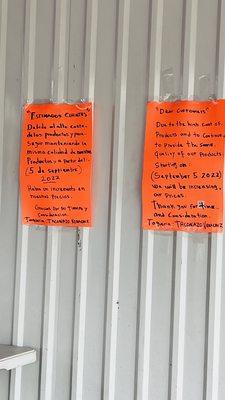 "ESTIMADOS CLIENTES"
Debido al alto costo
de los productos y para
Seguir manteniendo la
misma calidad de nuestros
Productos a partir del.
(5 de septiembre)
2022
Habra un incremento en
nuestros Precios.
Gracias Por su Tiempo y
Consideración.
Taqueria: TACONAZO
"DEAR CUSTOMERS"
Due to the high cost of
Products and to Continue
to Provide the Same
Quality of our Products.
Starting on:
(September 5 2022)
We will be increasing
our Prices.
Thank you for time
and Consideration.
Taqueria: TACONAZO